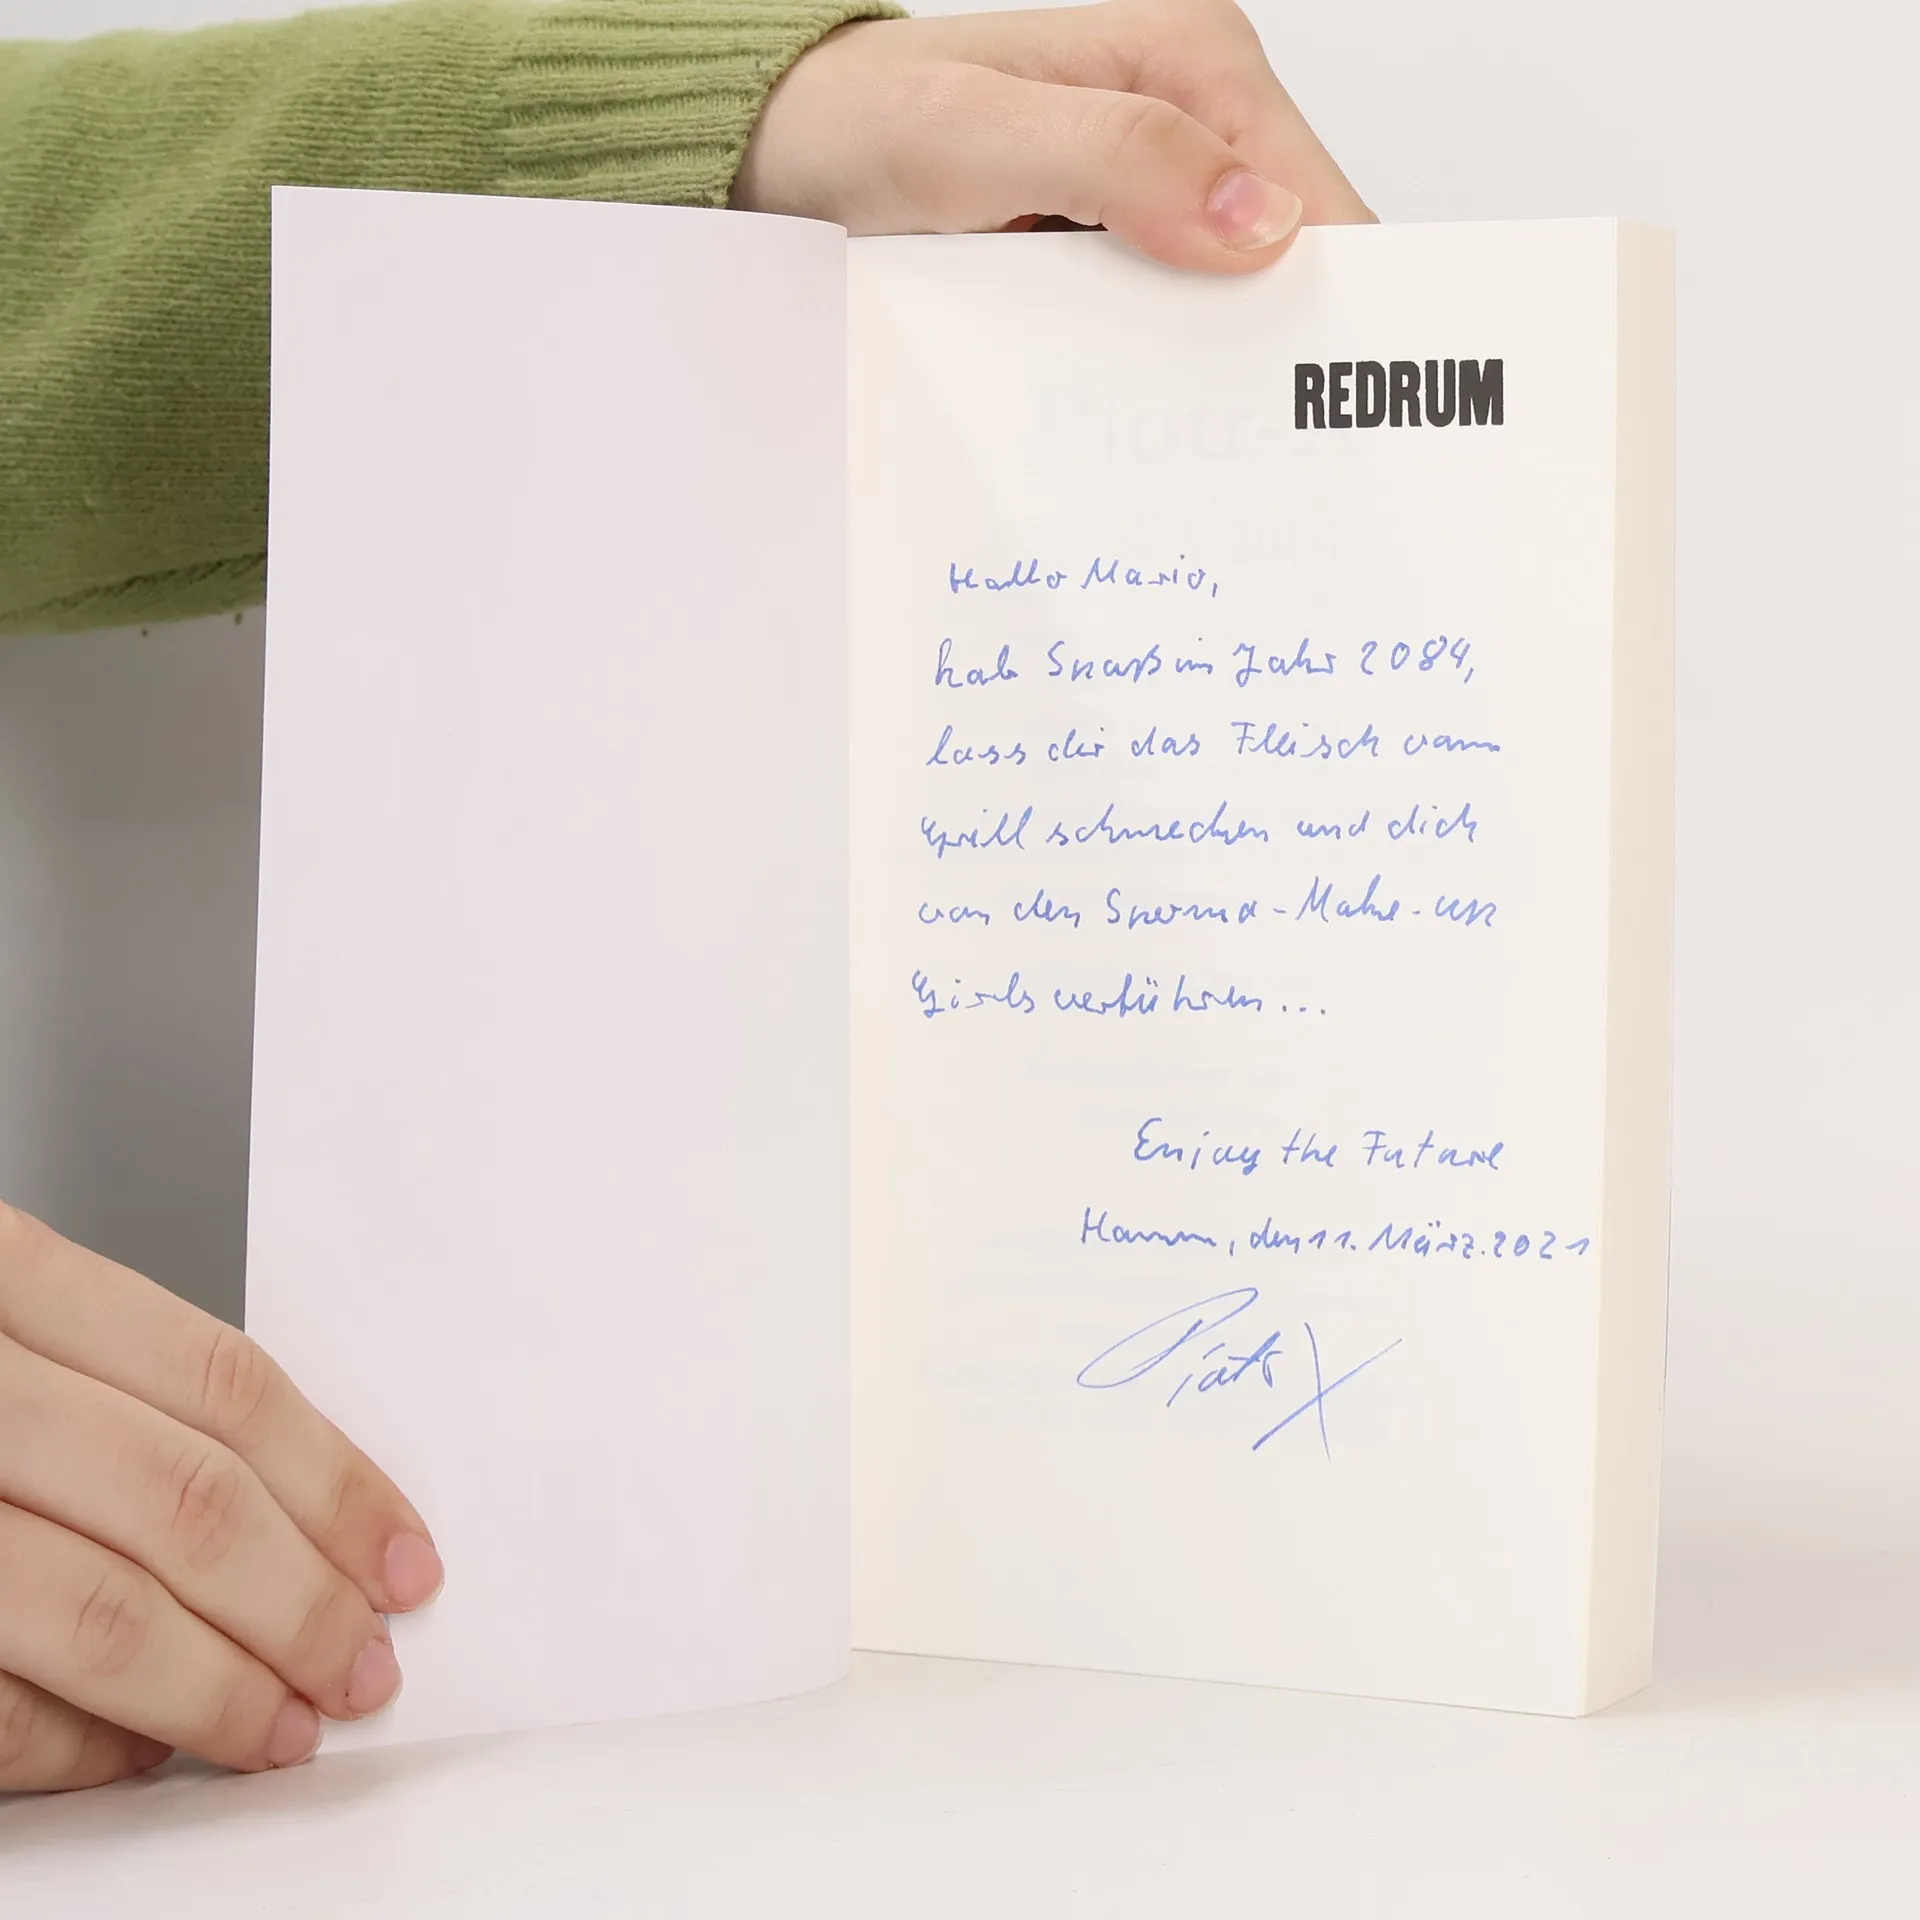 REDRUM
Hallo Mario,
hab Spaß im Jahr 2084,
lass dir das Fleisch vom
Grill schmecken und dich
von den Sperma-Make-up
Girls verführen...
Enjoy the Future
Hamm, den 11. März. 2021